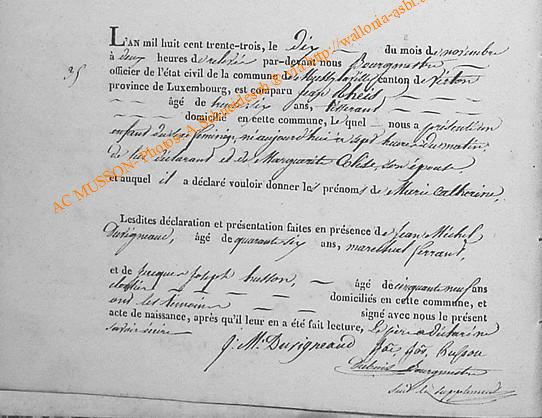 L'AN mil huit cent trente-trois, le dix — du mois de novembre
à deux heures de relevée par-devant nous Bourgmestre
officier de l'état civil de la commune de canton de Virton
35 province de Luxembourg, est comparu Jean
— — âgé de six ans,
— — — domicilié en cette commune, le quel — nous a présenté un
enfant du sexe féminin, né aujourd'hui à sept heures du matin,
de lui déclarant et de Marguerite son épouse
et auquel il a déclaré vouloir donner les prénoms de Marie Catherine,
Lesdites déclaration et présentation faites en présence de Jean Michel
Duvigneaud, âgé de quarante six ans, marechal ferrant,
et de Jacques Joseph husson, — âgé de cinquante neuf ans
— — — — domiciliés en cette commune, et
ont les témoins — — — signé avec nous le présent
acte de naissance, après qu'il leur en a été fait lecture, le père a déclaré ne
savoir écrire —
J. M. Duvigneaud Jac, Jos, husson
Bourgmestre
suit le supplement
AC MUSSON- Photos- A Schmedesbg @ via http://wallonia-asbl.org